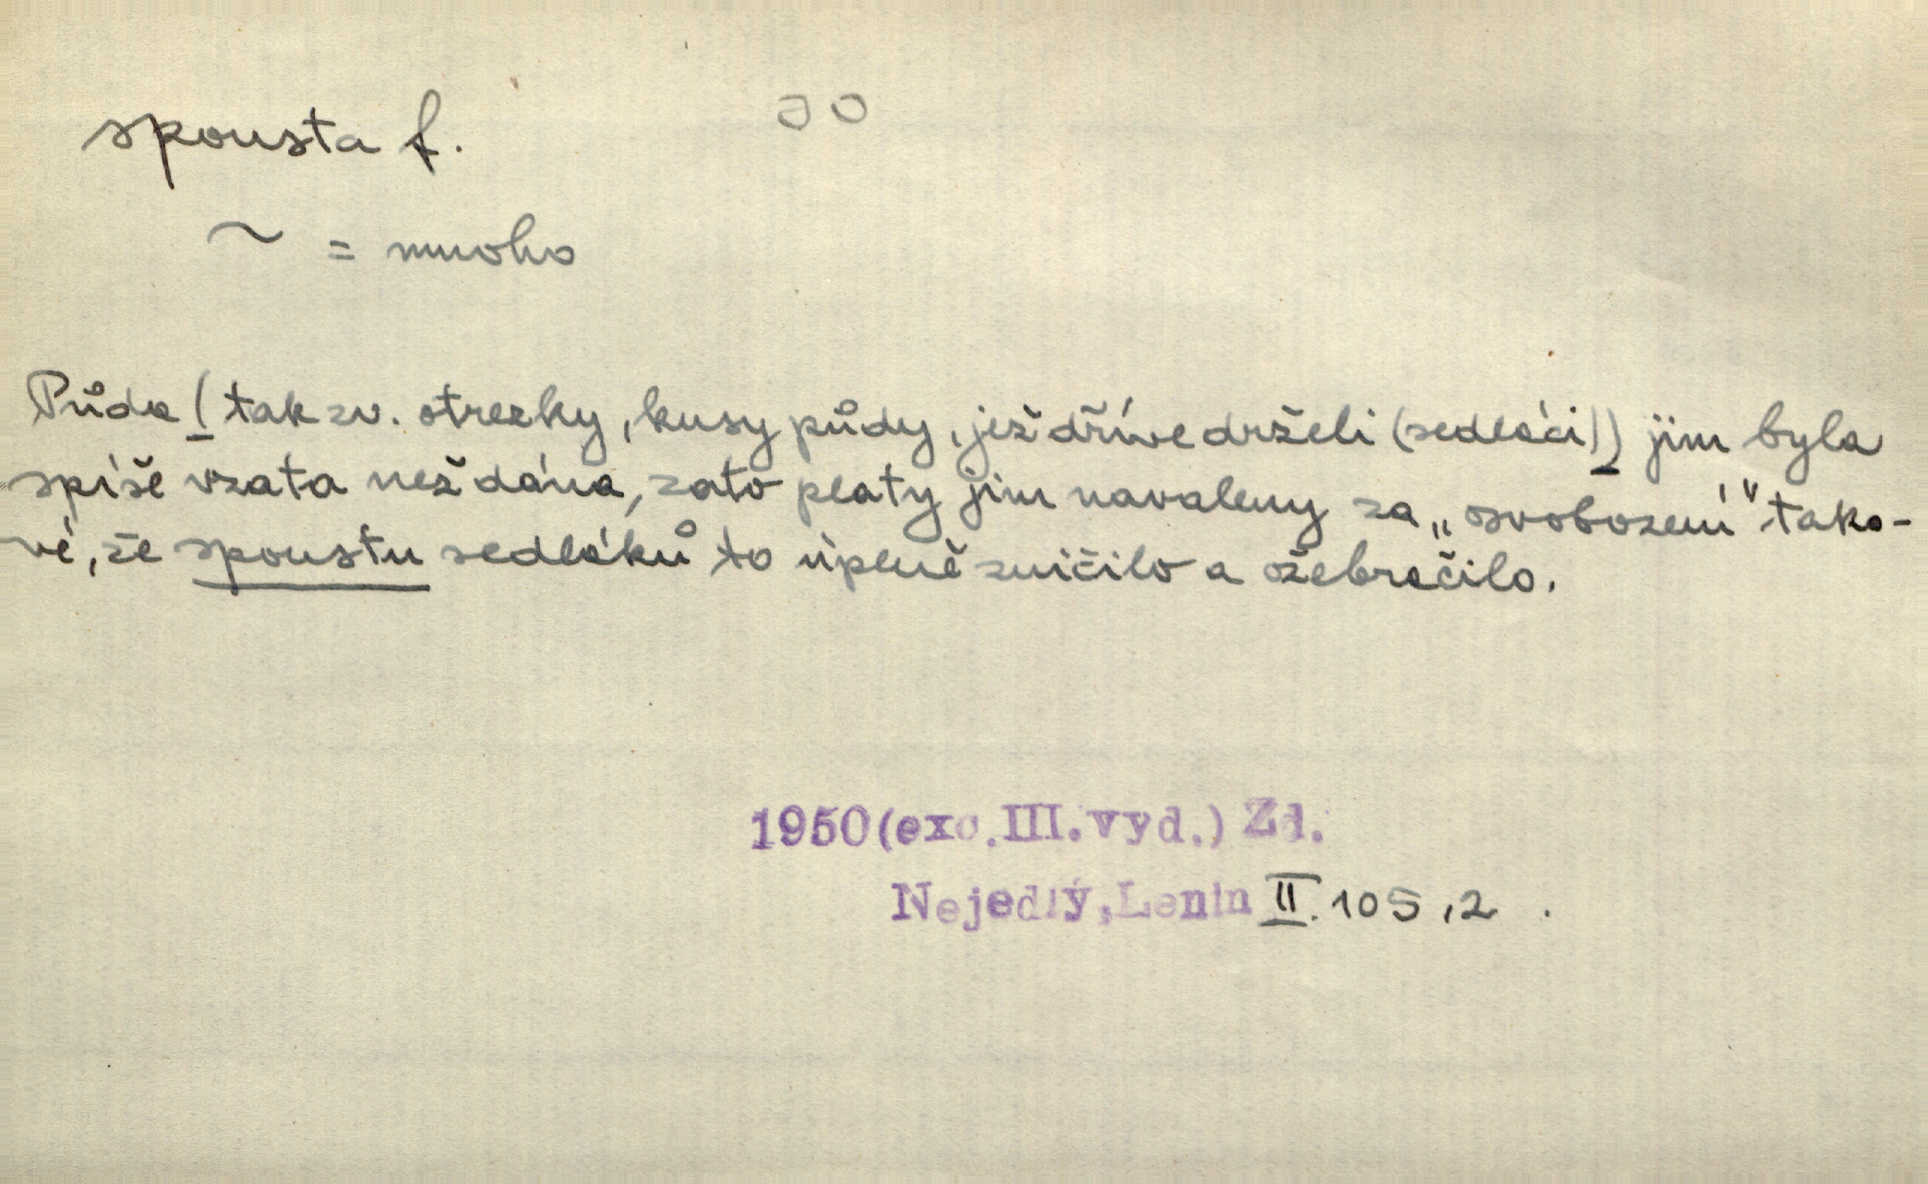 spousta f.
~ = mnoho
Půda (tak zv. otrezky, kusy půdy, jež dříve drželi (sedláci)) jim byla
spíše vzata než dána, zato platy jim navaleny za „osvobození" tako-
vé, že spoustu sedláků to úplně zničilo a ožebračilo.
1950(exc.III.vyd.) Zd.
Nejedlý,Lenin II. 105,2.